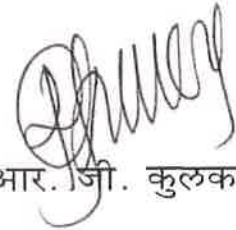 आर. जी. कुलक